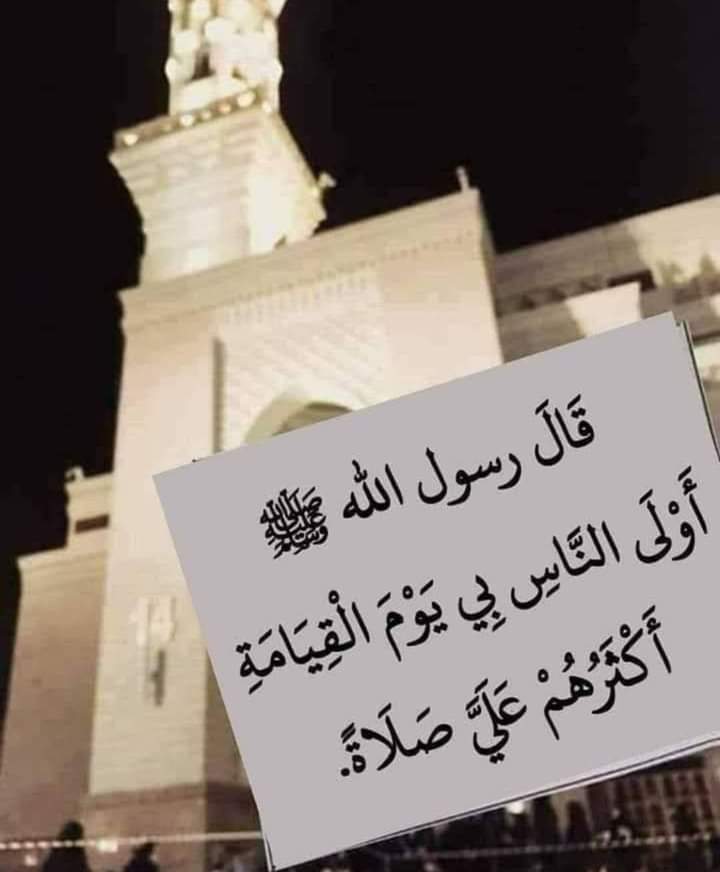 قَالَ رسول الله ﷺ
أَوْلَى النَّاسِ بِي يَوْمَ الْقِيَامَةِ
أَكْثَرُهُمْ عَلَيَّ صَلَاةً.
14